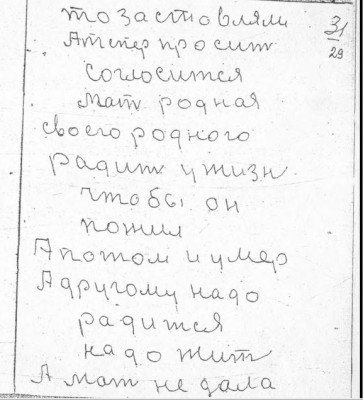 то застовляли
Атепер просит
соглосится
мат родная
своего родного
радит ужизн
чтобы он
пожил
Апотом и умер
Адругому надо
радится
надо жит
А мат не дала
31
29